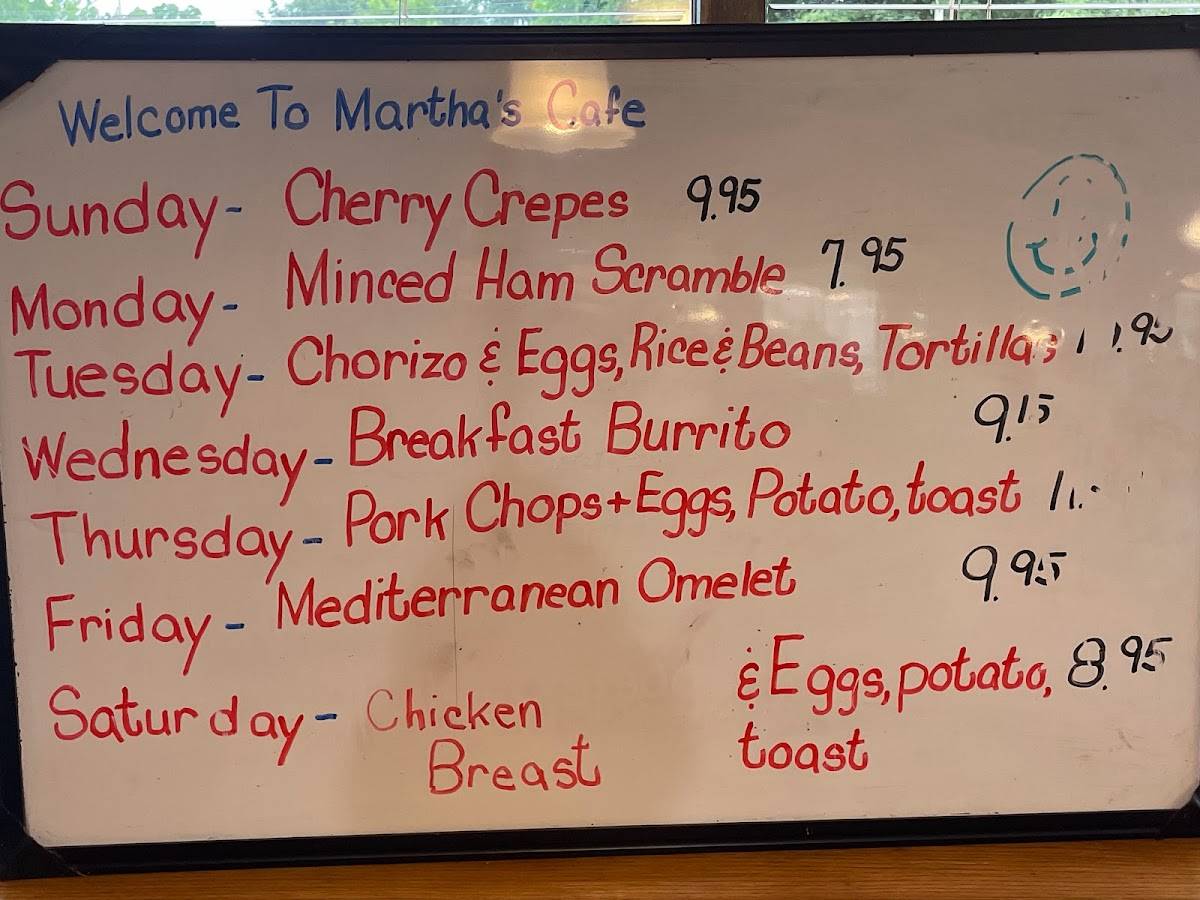 Welcome To Martha's Cafe
Sunday- Cherry Crepes 9.95
Monday- Minced Ham Scramble 7.95
Tuesday- Chorizo & Eggs, Rice & Beans, Tortillas
Wednesday- Breakfast Burrito 9.15
Thursday- Pork Chops + Eggs, Potato, toast
Friday- Mediterranean Omelet 9.95
Saturday- Chicken Breast & Eggs, potato, toast 8.95